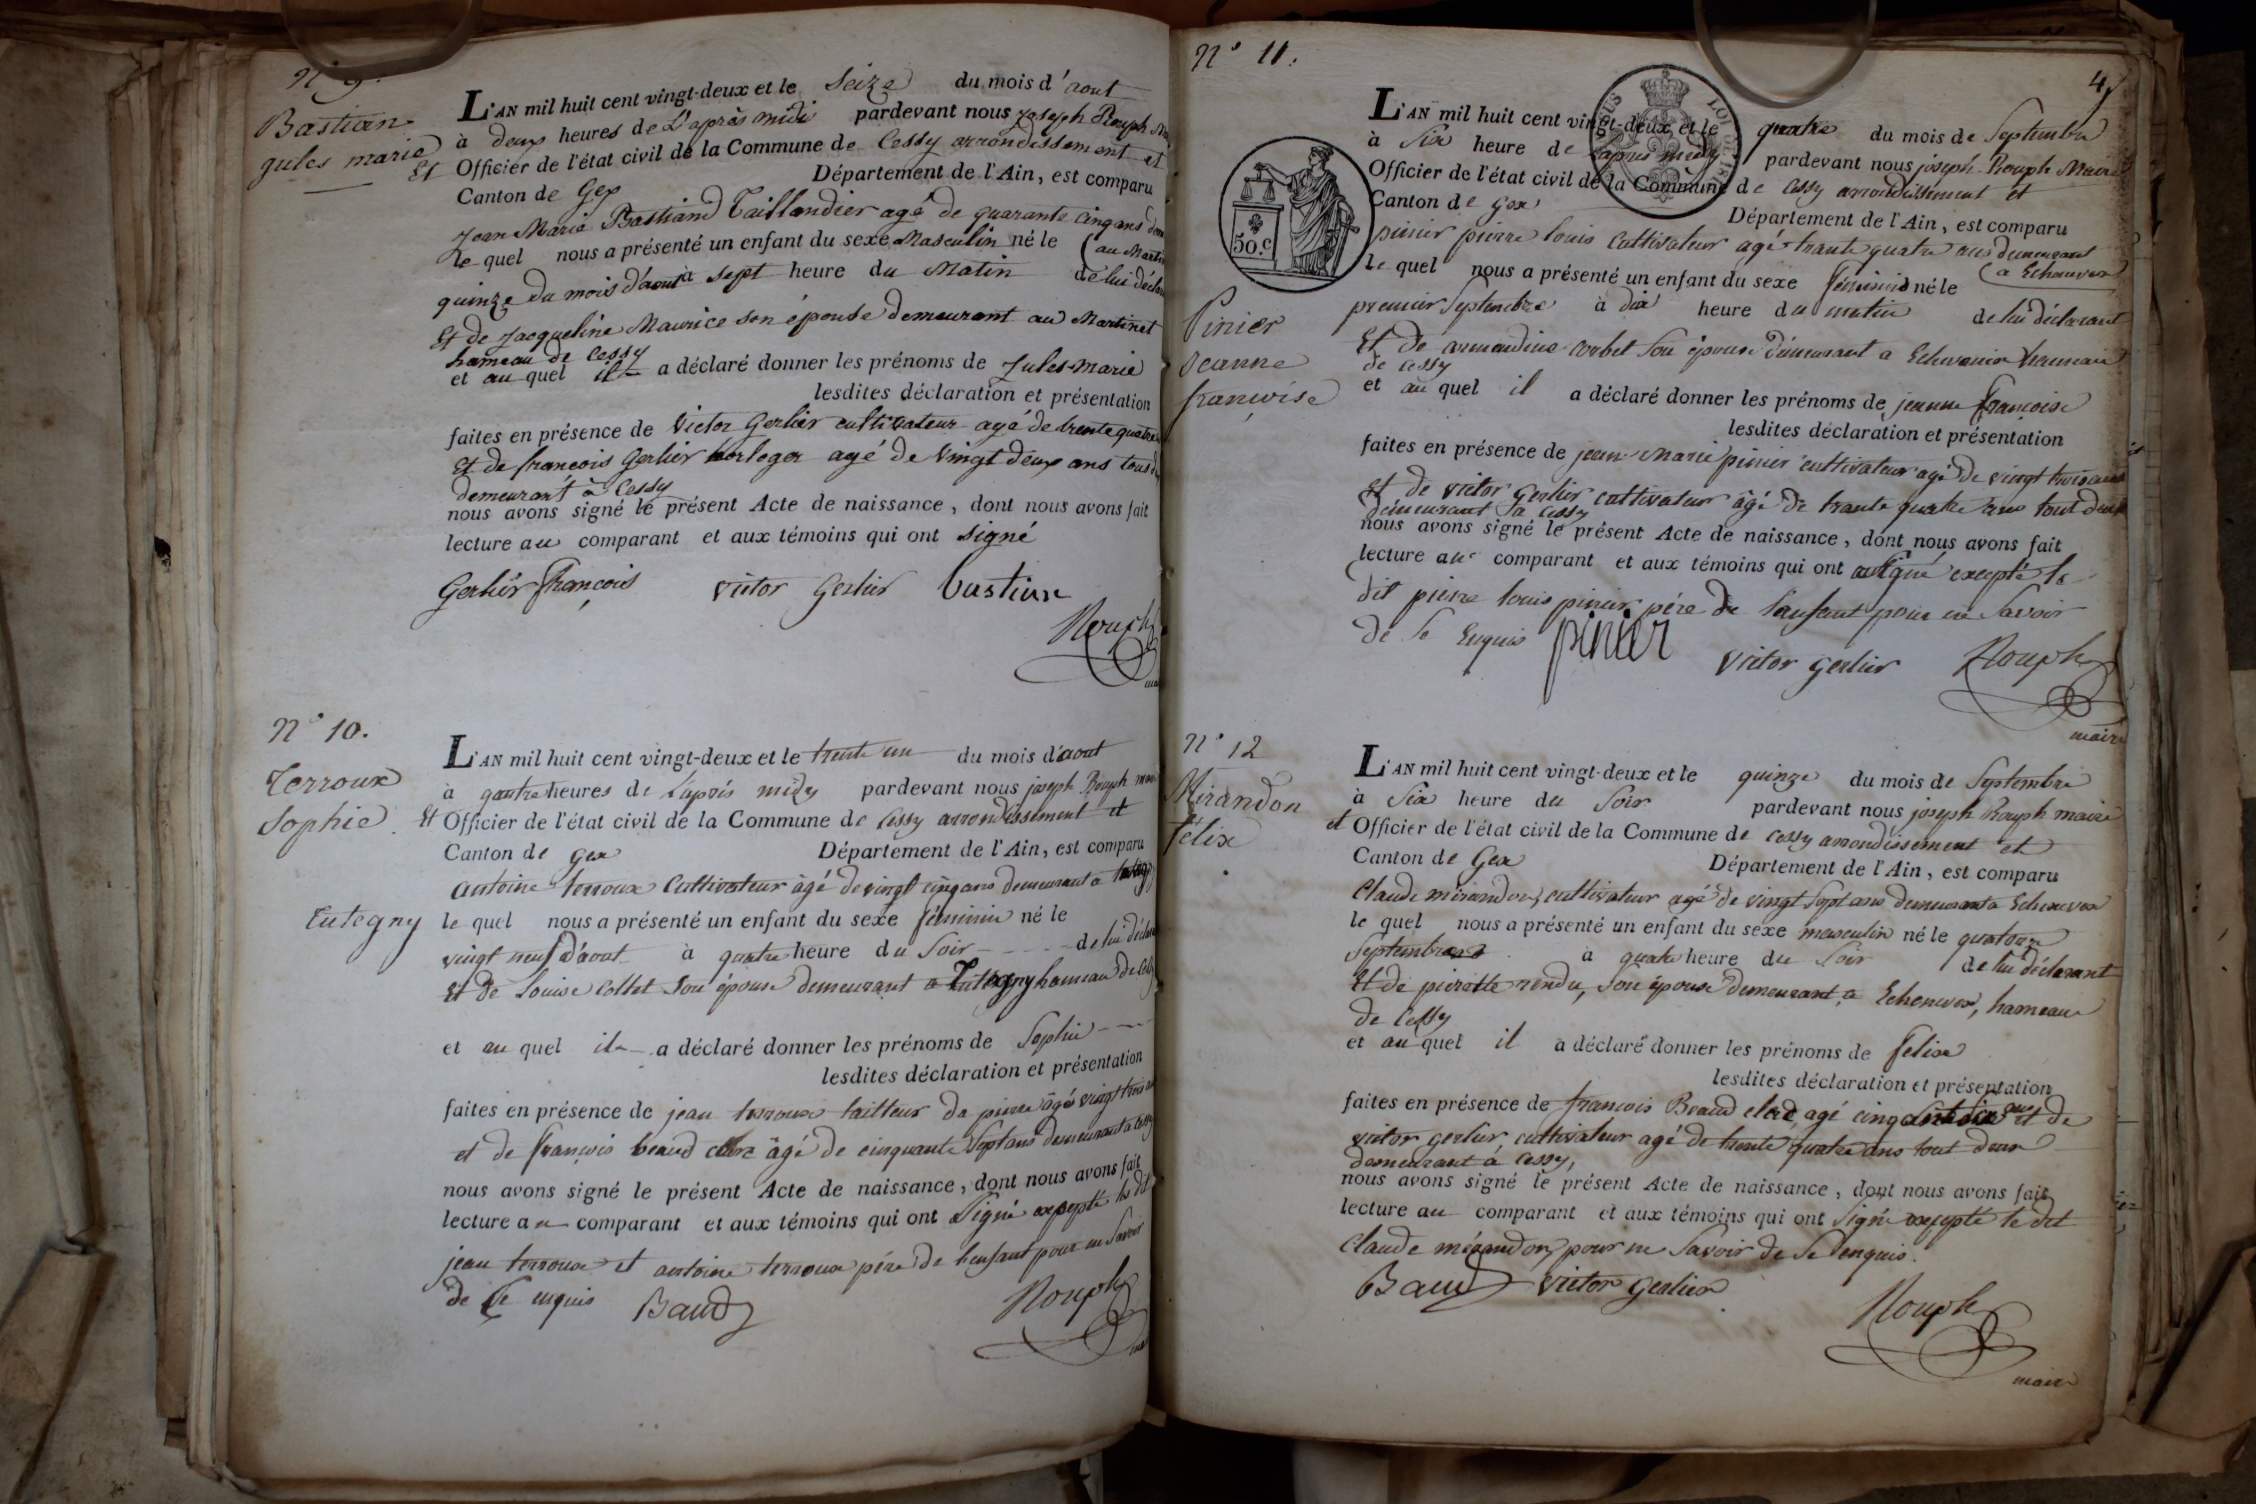 N° 9.
Bastian
jules marie
L'AN mil huit cent vingt-deux et le seize du mois d'aout
à deux heures de L'après midi pardevant nous joseph Rouph
Et Officier de l'état civil de la Commune de Cessy arrondissement et
Canton de Gex Département de l'Ain, est comparu
jean Marie Bastiand Taillandier agé de quarante cinq ans
le quel nous a présenté un enfant du sexe Masculin né le (au Martin
quinze du mois d'aout à sept heure du Matin de lui
Et de jacqueline Maurice son épouse demeurant au Martinet
hameau de Cessy
et au quel il a déclaré donner les prénoms de jules-marie
lesdites déclaration et présentation
faites en présence de Victor Gerlier cultivateur agé de trente quatre
Et de françois Gerlier horloger agé de vingt deux ans tous
demeurant à Cessy
nous avons signé le présent Acte de naissance, dont nous avons fait
lecture au comparant et aux témoins qui ont signé
Gerlier françois victor Gerlier bastian
Rouph
N° 10.
Terroux
Sophie
Tutegny
L'AN mil huit cent vingt-deux et le trente un du mois d'aout
à quatre heures de l'après midy pardevant nous joseph Rouph
Et Officier de l'état civil de la Commune de Cessy arrondissement et
Canton de gex Département de l'Ain, est comparu
antoine terroux Cultivateur âgé de vingt cinq ans demeurant a
le quel nous a présenté un enfant du sexe féminin né le
vingt neuf d'aout à quatre heure du Soir de lui
Et de Louise Collet Son épouse demeurant a Tutegny hameau de
et au quel il a déclaré donner les prénoms de Sophie
lesdites déclaration et présentation
faites en présence de jean terroux tailleur de pierre âgé vingt trois
et de françois beaud clerc âgé de cinquante Sept ans demeurant a
nous avons signé le présent Acte de naissance, dont nous avons fait
lecture au comparant et aux témoins qui ont Signé excepté les dit
jean terroux et antoine terroux père de l'enfant pour ne Savoir
de Ce enquis Baud
Rouph
N° 11.
4
50. c
Pinier
jeanne
françoise
L'AN mil huit cent vingt-deux et le quatre du mois de Septembre
à Six heure de l'après midy pardevant nous joseph Rouph Maire
Officier de l'état civil de la Commune de Cessy arrondissement et
Canton de Gex Département de l'Ain, est comparu
pinier pierre louis Cultivateur agé trante quatre ans demeurant
le quel nous a présenté un enfant du sexe féminin né le (a Echenevex
premier Septembre à dix heure du matin de lui déclarant
Et de armandine corbet Son épouse demeurant a Echenevex hameau
de Cessy
et au quel il a déclaré donner les prénoms de jeanne françoise
lesdites déclaration et présentation
faites en présence de jean-Marie pinier cultivateur agé de vingt trois ans
Et de victor Gerlier cultivateur âgé de trante quatre ans tout deux
demeurant a Cessy
nous avons signé le présent Acte de naissance, dont nous avons fait
lecture au comparant et aux témoins qui ont Signé excepté le
dit pierre louis pinier père de l'enfant pour ne Savoir
de Ce Enquis pinier victor gerlier Rouph
maire
N° 12
Mirandon
félix
L'AN mil huit cent vingt-deux et le quinze du mois de Septembre
à Six heure du Soir pardevant nous joseph Rouph maire
et Officier de l'état civil de la Commune de Cessy arrondissement et
Canton de Gex Département de l'Ain, est comparu
Claude mirandon, cultivateur agé de vingt Sept ans demeurant a Echenevex
le quel nous a présenté un enfant du sexe masculin né le quatorze
Septembre à quatre heure du Soir de lui déclarant
Et de pierrette rendu, Son épouse demeurant a Echenevex, hameau
de Cessy
et au quel il a déclaré donner les prénoms de felix
lesdites déclaration et présentation
faites en présence de françois Beaud clerc, agé cinquante ans et de
victor gerlier, cultivateur agé de trente quatre ans tout deux
demeurant à Cessy,
nous avons signé le présent Acte de naissance, dont nous avons fait
lecture au comparant et aux témoins qui ont Signé excepté le dit
Claude mirandon, pour ne Savoir de Ce enquis.
Baud victor gerlier
Rouph
maire